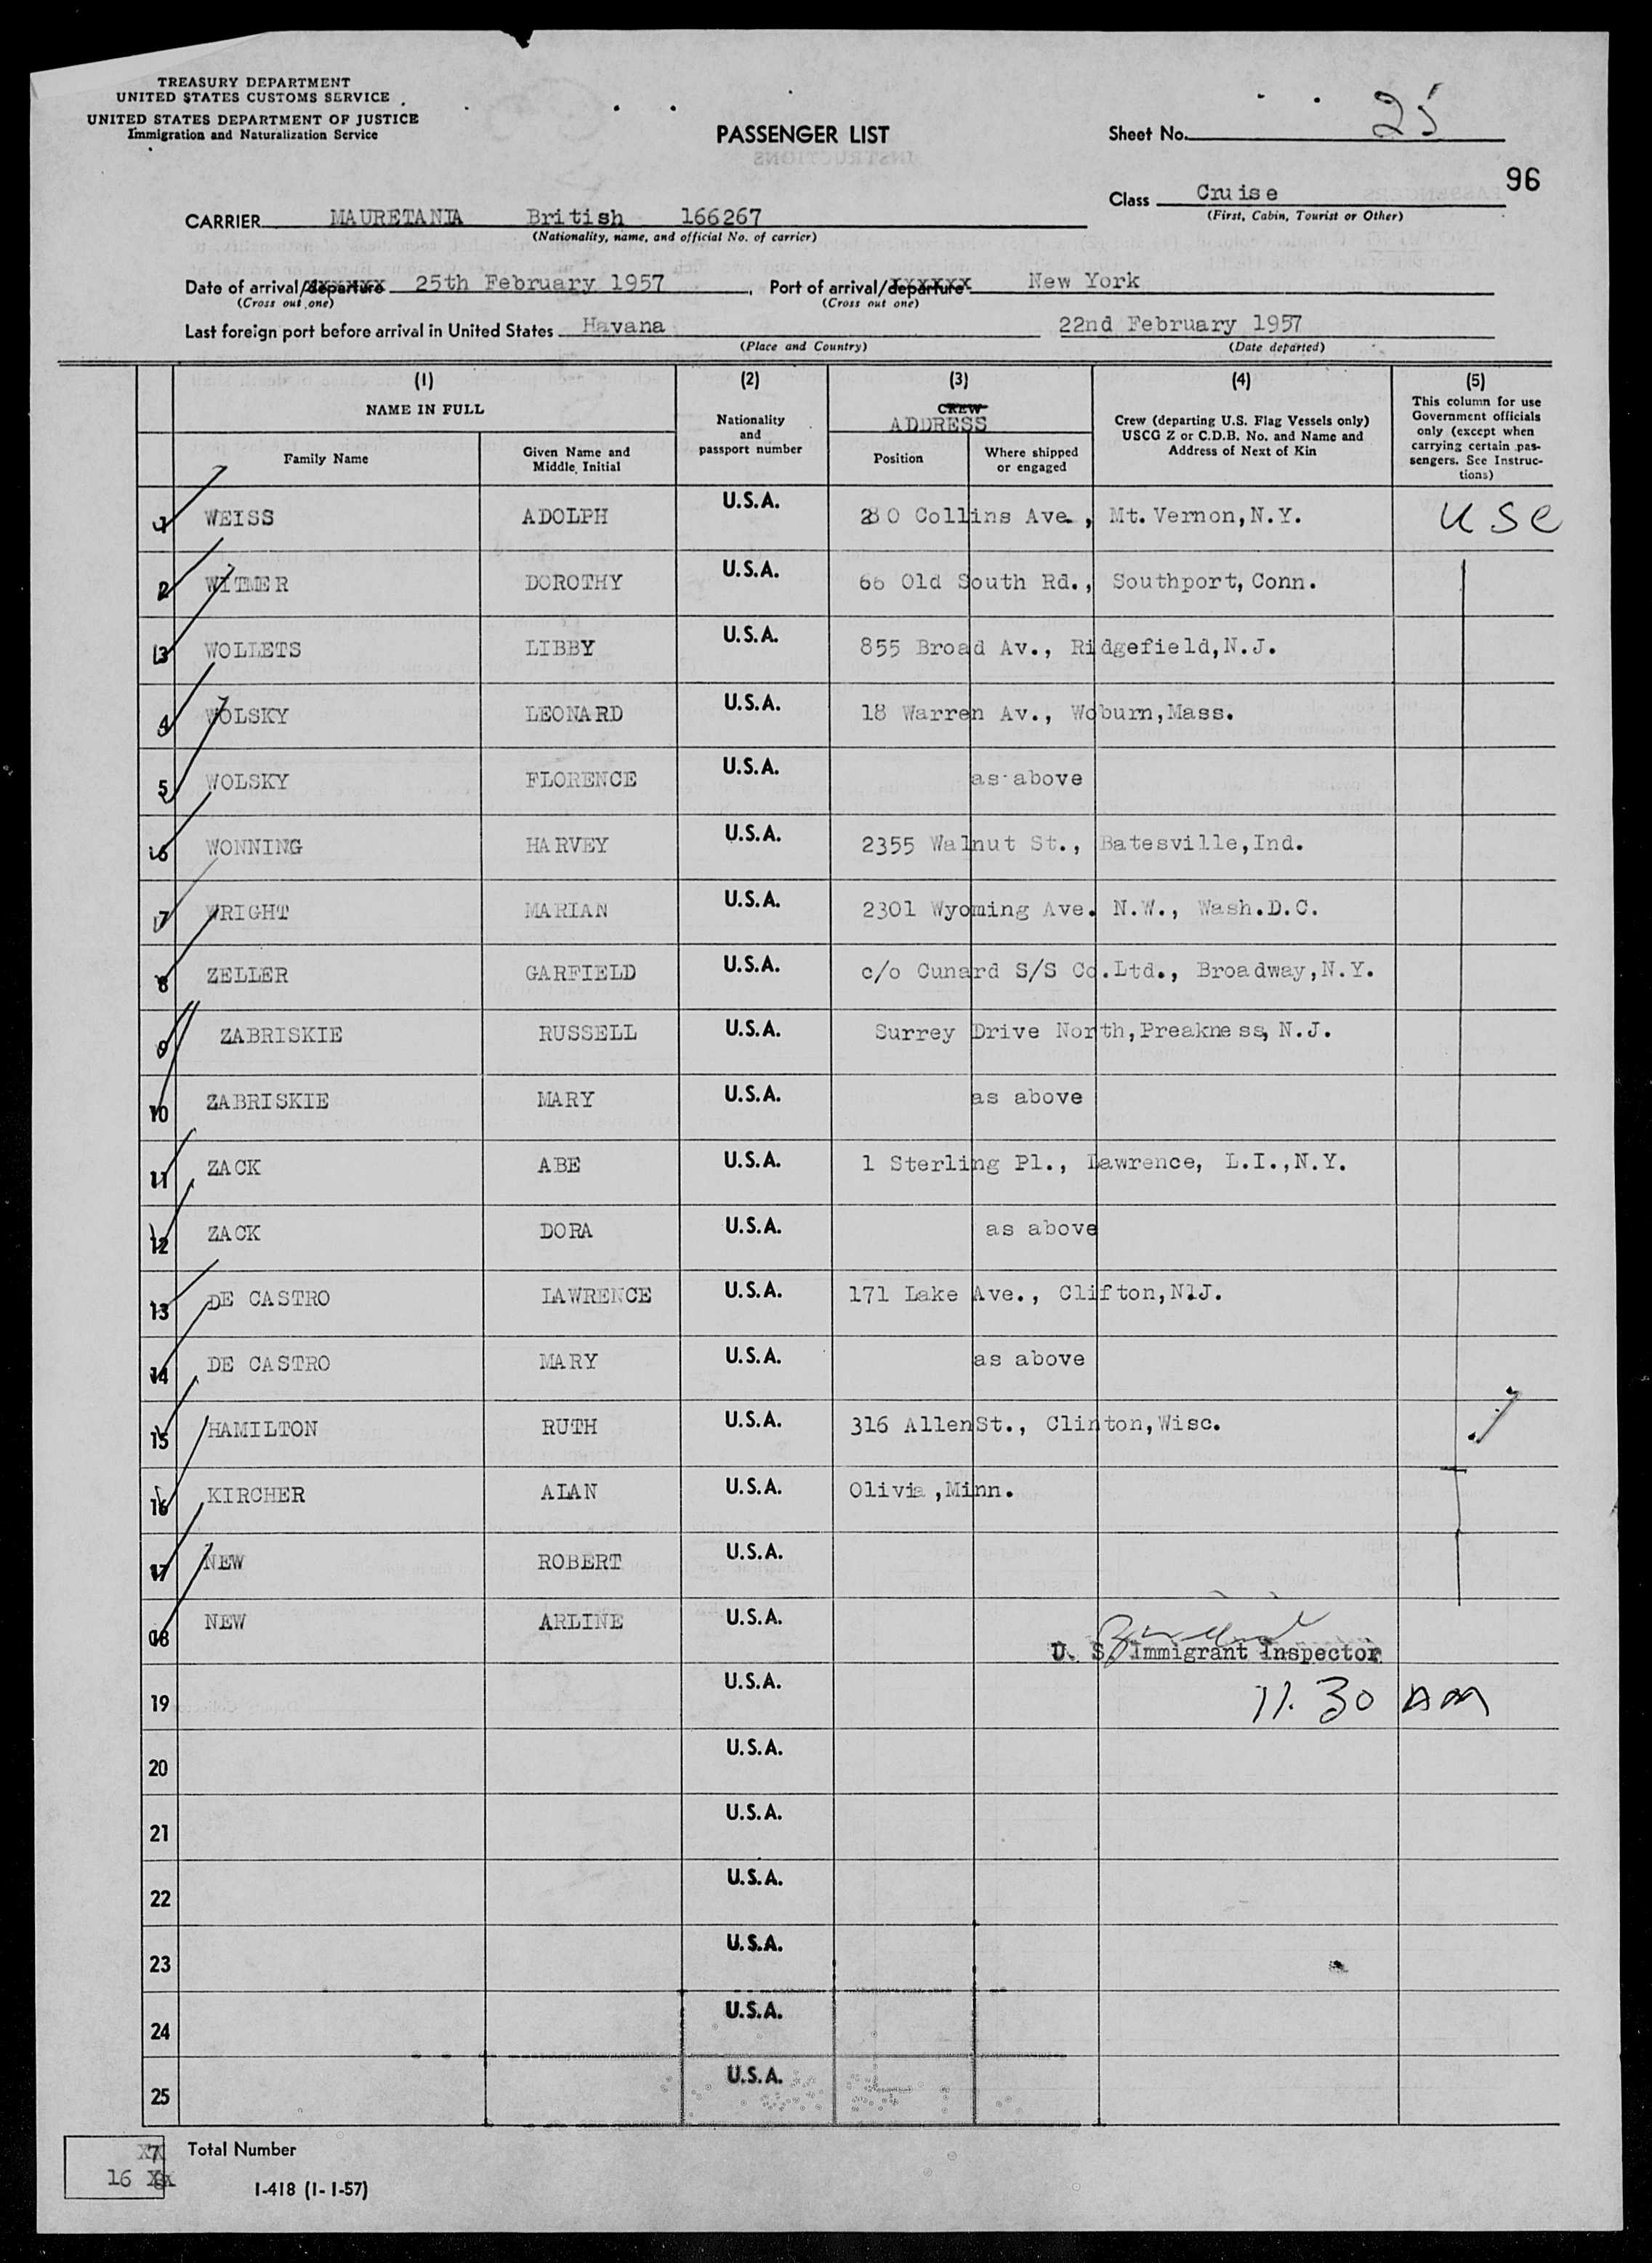 TREASURY DEPARTMENT
UNITED STATES CUSTOMS SERVICE
UNITED STATES DEPARTMENT OF JUSTICE
Immigration and Naturalization Service
PASSENGER LIST
Sheet No. 25
96
Class Cruise
(First, Cabin, Tourist or Other)
CARRIER MAURETANIA British 166267
(Nationality, name, and official No. of carrier)
Date of arrival/departure 25th February 1957, Port of arrival/departure New York
(Cross out one) (Cross out one)
Last foreign port before arrival in United States Havana 22nd February 1957
(Place and Country) (Date departed)
(1) (2) (3) (4) (5)
NAME IN FULL
Family Name
Given Name and Middle Initial
Nationality and passport number
CREW
ADDRESS
Position
Where shipped or engaged
Crew (departing U.S. Flag Vessels only)
USCG Z or C.D.B. No. and Name and
Address of Next of Kin
This column for use
Government officials
only (except when
carrying certain pas-
sengers. See Instruc-
tions)
1 WEISS ADOLPH U.S.A. 280 Collins Ave., Mt. Vernon, N.Y. USC
2 WITMER DOROTHY U.S.A. 66 Old South Rd., Southport, Conn.
3 WOLLETS LIBBY U.S.A. 855 Broad Av., Ridgefield, N.J.
4 WOLSKY LEONARD U.S.A. 18 Warren Av., Woburn, Mass.
5 WOLSKY FLORENCE U.S.A. as above
6 WONNING HARVEY U.S.A. 2355 Walnut St., Batesville, Ind.
7 WRIGHT MARIAN U.S.A. 2301 Wyoming Ave. N.W., Wash.D.C.
8 ZELLER GARFIELD U.S.A. c/o Cunard S/S Co.Ltd., Broadway, N.Y.
9 ZABRISKIE RUSSELL U.S.A. Surrey Drive North, Preakness, N.J.
10 ZABRISKIE MARY U.S.A. as above
11 ZACK ABE U.S.A. 1 Sterling Pl., Lawrence, L.I., N.Y.
12 ZACK DORA U.S.A. as above
13 DE CASTRO LAWRENCE U.S.A. 171 Lake Ave., Clifton, N.J.
14 DE CASTRO MARY U.S.A. as above
15 HAMILTON RUTH U.S.A. 316 Allen St., Clinton, Wisc.
16 KIRCHER ALAN U.S.A. Olivia, Minn.
17 NEW ROBERT U.S.A.
18 NEW ARLINE U.S.A.
U. S. Immigrant Inspector
19 U.S.A. 11.30 AM
20 U.S.A.
21 U.S.A.
22 U.S.A.
23 U.S.A.
24 U.S.A.
25 U.S.A.
Total Number
16
I-418 (1-1-57)